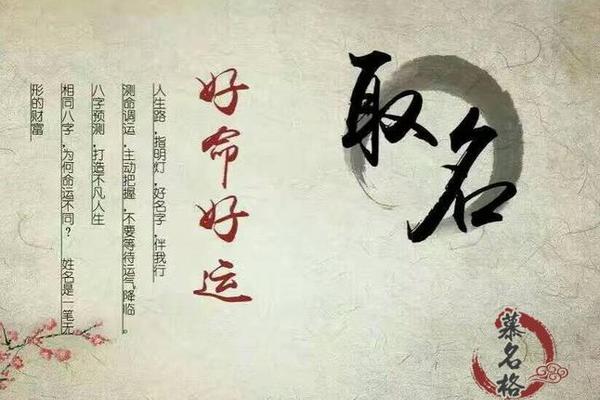 取名
好命好运
人生路,指明灯,好名字,伴我行
测命调运,主动把握,不要等待运气降临。
八字预测,打造不凡人生
相同八字,为何命运不同? 姓名是一笔无
形的财富
慕名格